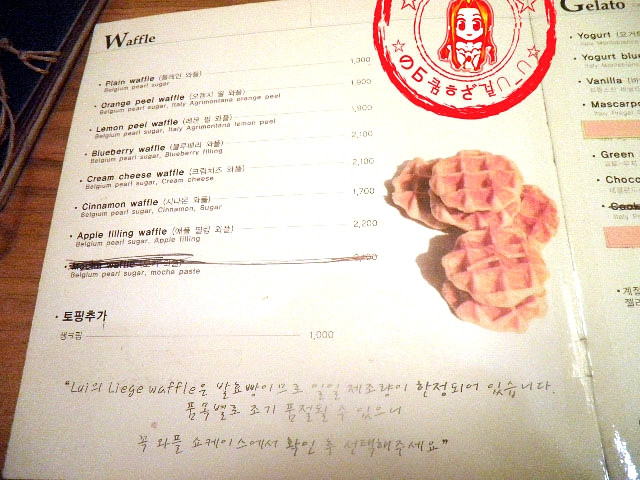 Waffle
Plain waffle (플레인 와플) 1,300
Belgium pearl sugar
Orange peel waffle (오렌지 필 와플) 1,900
Belgium pearl sugar, Italy Agrimontana orange peel
Lemon peel waffle (레몬 필 와플) 1,900
Belgium pearl sugar, Italy Agrimontana lemon peel
Blueberry waffle (블루베리 와플) 2,100
Belgium pearl sugar, Blueberry filling
Cream cheese waffle (크림치즈 와플) 2,100
Belgium pearl sugar, Cream cheese
Cinnamon waffle (시나몬 와플) 1,700
Belgium pearl sugar, Cinnamon, Sugar
Apple filling waffle (애플 필링 와플) 2,200
Belgium pearl sugar, Apple filling
Belgium pearl sugar, mocha paste
토핑추가
생크림 1,000
"Lui의 Liege waffle은 발효빵이므로 일일 제조량이 한정되어 있습니다.
품목별로 조기 품절될 수 있으니
꼭 와플 쇼케이스에서 확인 후 선택해주세요"
Gelato
Yogurt
Yogurt blue
Vanilla
Mascarpo
Green
Choco